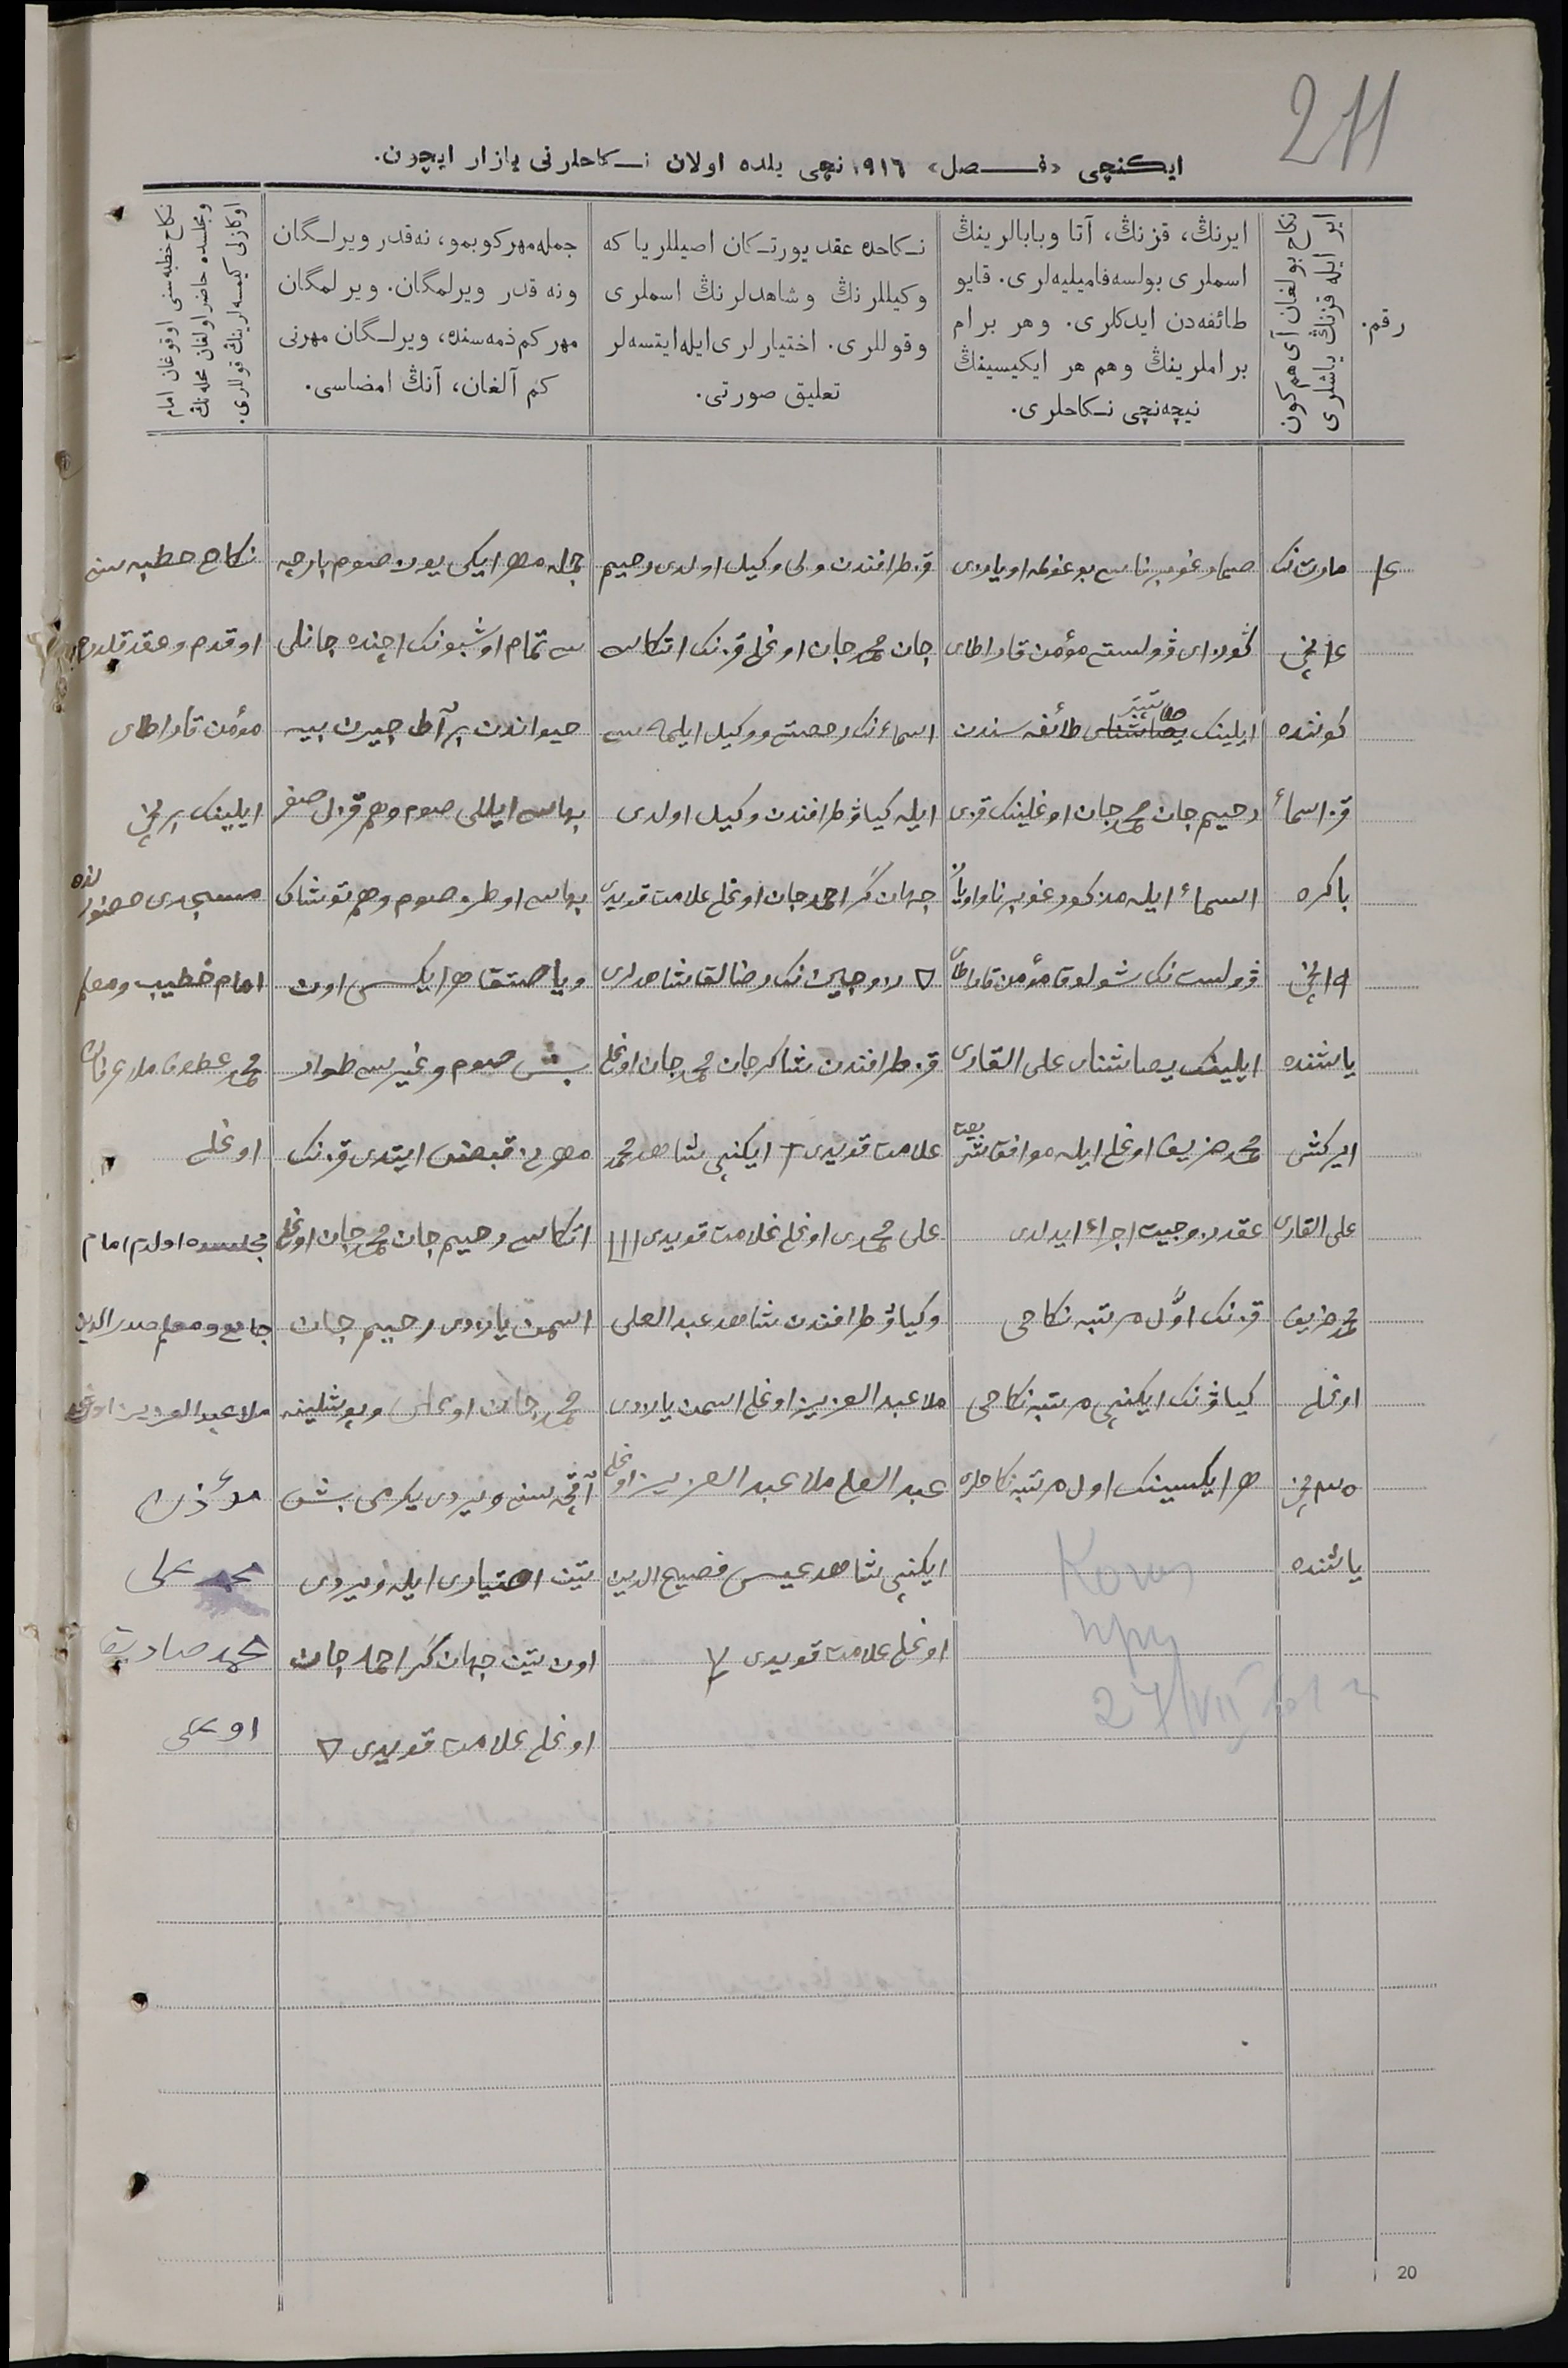 211
ایکنچی «فصل» ١٩١٦نچی یلده اولان نکاحلرنی یازار ایچون.
رقم.
نکاح بولغان آی هم کون
ایر ایله قزنڭ یاشلری
ایرنڭ، قزنڭ، آتا وبابالرینڭ
اسملری بولسه فامیلیه‌لری. قایو
طائفه‌دن ایدکلری. وهر برام
براملرینڭ وهم هر ایکیسینڭ
نیچه‌نچی نکاحلری.
نکاحده عقد یورتکان اصیللر یا که
وکیللرنڭ وشاهدلرنڭ اسملری
وقوللری. اختیارلری ایله ایتسه‌لر
تعلیق صورتی.
جمله مهر کوبمو، نه‌قدر ویرلگان
ونه قدر ویرلمگان. ویرلمگان
مهر کم ذمه‌سنده، ویرلگان مهرنی
کم آلغان، آنڭ امضاسی.
نکاح خطبه‌سنی اوقوغان امام
ومجلسده حاضر اولغان محله‌نڭ
اوکازلی کیمسه‌لرینڭ قوللری.
مارت نک
١٤ نچی
کوننده
قز اسماء
باکره
١٩ نچی
یاشنده
ایرکشی
علی القاری
محمد ظریف
اوغلی
٣٥ نچی
یاشنده
غوبیرناسی بوغولمه اویازی
مؤمن قاراطای
ایلینک طائفه سندن
رحیم جان محمد جان اوغلینک قزی
اسماء ایله مذکور غوبیرنا واویاز
ڤولست نک مؤمن قاراطای
ایلینک علی القاری
محمد ظریف اوغلی ایله موافق شریعت
عقد زوجیت اجراء ایدلدی
قزنک اوّل مرتبه نکاحی
کیاونک ایکنچی مرتبه نکاحی
هر ایکسینک اول مرتبه نکاحلری
قز طرافندن ولی وکیل اولدی رحیم
جان محمد جان اوغلی قزنک اتکاسی
اسماءنک رخصتی ووکیل ایلمه سی
ایله کیاو طرافندن وکیل اولدی
جهان گر احمد جان اوغلی علامت قویدی
زوجین نک رضالقا شاهدلری
قز طرافندن شاکر جان محمد جان اوغلی
علامت قویدی ایکنچی شاهد محمد
علی محمدی اوغلی علامت قویدی
وکیاو طرافندن شاهد عبد العلی
ملا عبد العزیز اوغلی اسمن یازدی
عبد العلی ملا عبد العزیز اوغلی
ایکنچی شاهد عیسی فصیح الدین
اوغلی علامت قویدی
جمله مهر ایکی یوز صوم بارچه
سی تمام اوشبونک اچنده جانلی
حیواندن بر آط جیرن بییه
بهاسی ایللی صوم وهم قزل صغر
بهاسی اوطز صوم وهم توشاک
ویاصتق هر ایکسی اون
بش صوم وغیرسی طوار
مهرنی قبض ایتدی قزنک
اتکاسی رحیم جان محمد جان اوغلی
اسمن یازدی رحیم جان
محمد جان اوغلی
آقچه سن ویردی یکرمی بش
تین اختیاری ایله ویردی
اون تین جهان گر احمد جان
اوغلی علامت قویدی
نکاح خطبه سنی
اوقدم وعقد قلدم
مؤمن قاراطای
ایلینک برنچی
مسجدی حضورنده
امام خطیب ومعلم
اوغلی
مجلسده اولدم امام
جامع ومعلم صدر الدین
ملا عبد العزیز اوغلی
مؤذن
محمد علی
محمد صادق
اوغلی
27/VII
20